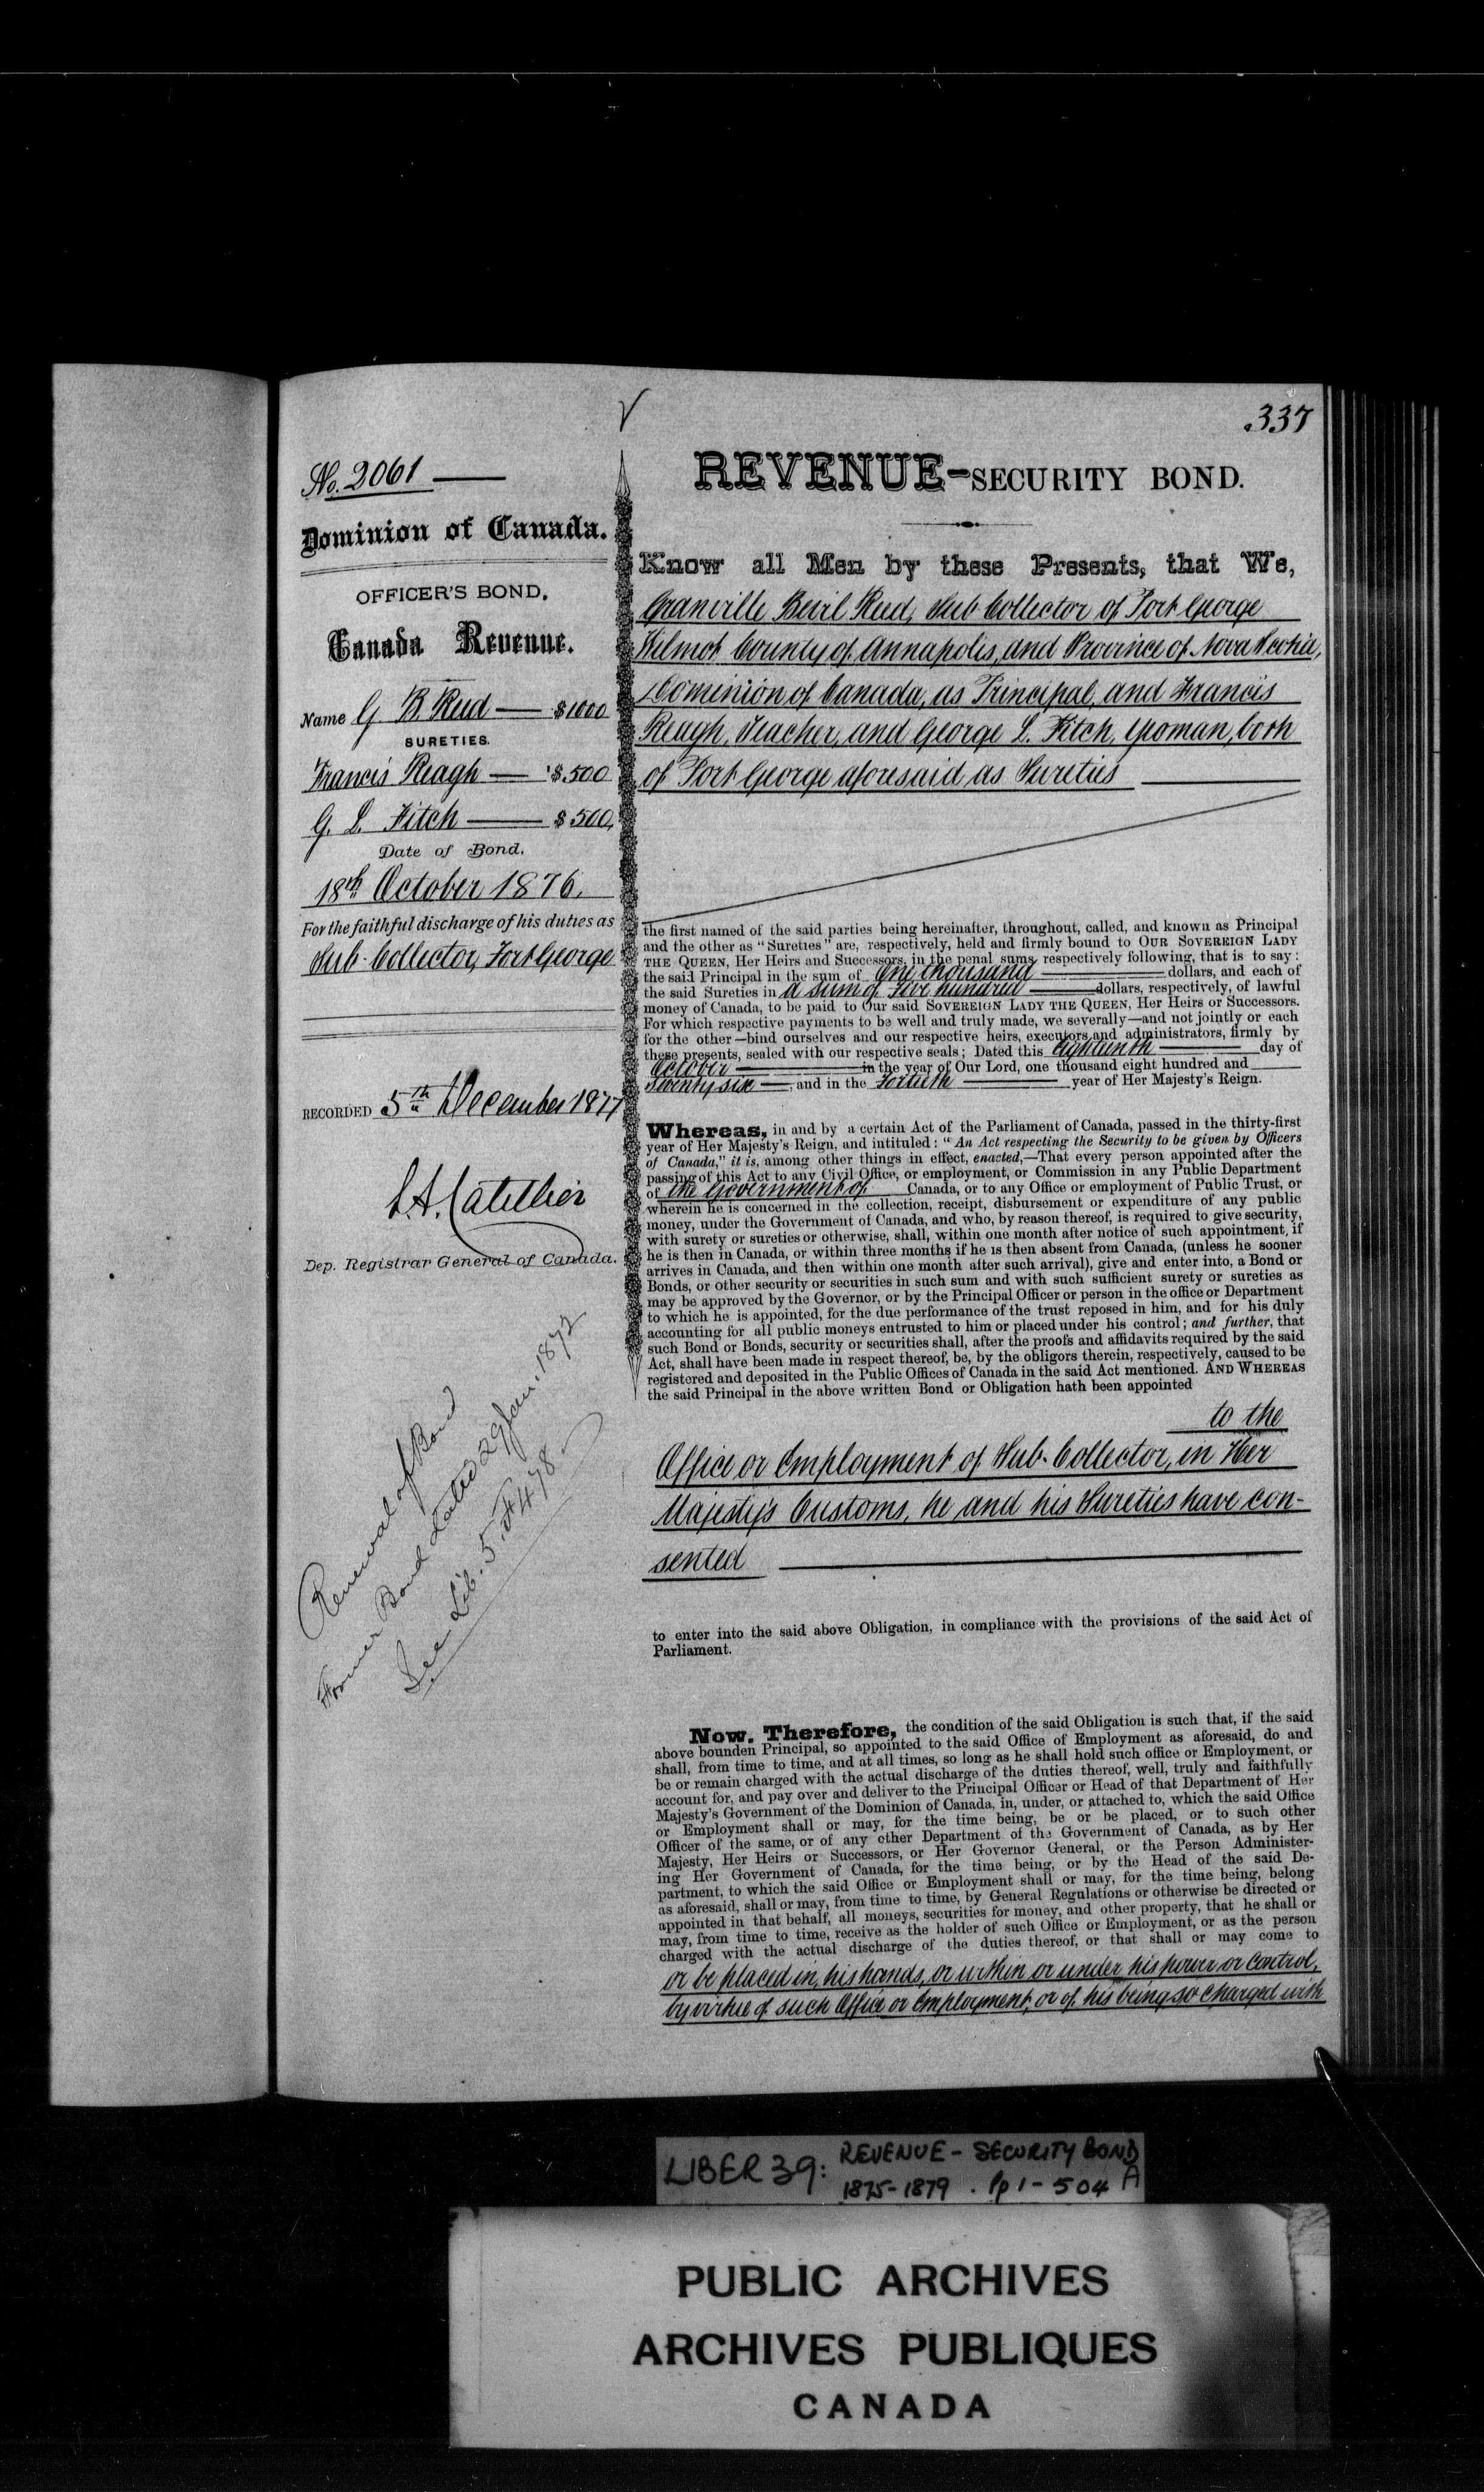 337
No. 2061
Dominion of Canada.
OFFICER'S BOND,
Canada Revenue.
Name G. B. Reid — $1000
SURETIES.
Francis Reagh — $500
G. L. Fitch — $500,
Date of Bond.
18th October 1876.
For the faithful discharge of his duties as
Sub-Collector, Port George
RECORDED 5th December 1877
L. A. Catellier
Dep. Registrar General of Canada.
Renewal of Bond
Former Bond dated 29 Jan. 1872
See Lib. 5. F 478
REVENUE-SECURITY BOND.
Know all Men by these Presents, that We,
Granville Bevil Reid, Sub Collector of Port George
Wilmot County of Annapolis, and Province of Nova Scotia,
Dominion of Canada, as Principal, and Francis
Reagh, Teacher, and George L. Fitch, Yoman, both
of Port George aforesaid as Sureties
the first named of the said parties being hereinafter, throughout, called, and known as Principal
and the other as "Sureties" are, respectively, held and firmly bound to OUR SOVEREIGN LADY
THE QUEEN, Her Heirs and Successors, in the penal sums respectively following, that is to say:
the said Principal in the sum of One thousand dollars, and each of
the said Sureties in a sum of Five hundred dollars, respectively, of lawful
money of Canada, to be paid to Our said SOVEREIGN LADY THE QUEEN, Her Heirs or Successors.
For which respective payments to be well and truly made, we severally—and not jointly or each
for the other—bind ourselves and our respective heirs, executors and administrators, firmly by
these presents, sealed with our respective seals; Dated this Eighteenth day of
October in the year of Our Lord, one thousand eight hundred and
Seventy six, and in the Fortieth year of Her Majesty's Reign.
Whereas, in and by a certain Act of the Parliament of Canada, passed in the thirty-first
year of Her Majesty's Reign, and intituled: "An Act respecting the Security to be given by Officers
of Canada," it is, among other things in effect, enacted,—That every person appointed after the
passing of this Act to any Civil Office, or employment, or Commission in any Public Department
of the Government of Canada, or to any Office or employment of Public Trust, or
wherein he is concerned in the collection, receipt, disbursement or expenditure of any public
money, under the Government of Canada, and who, by reason thereof, is required to give security,
with surety or sureties or otherwise, shall, within one month after notice of such appointment, if
he is then in Canada, or within three months if he is then absent from Canada, (unless he sooner
arrives in Canada, and then within one month after such arrival), give and enter into, a Bond or
Bonds, or other security or securities in such sum and with such sufficient surety or sureties as
may be approved by the Governor, or by the Principal Officer or person in the office or Department
to which he is appointed, for the due performance of the trust reposed in him, and for his duly
accounting for all public moneys entrusted to him or placed under his control; and further, that
such Bond or Bonds, security or securities shall, after the proofs and affidavits required by the said
Act, shall have been made in respect thereof, be, by the obligors therein, respectively, caused to be
registered and deposited in the Public Offices of Canada in the said Act mentioned. AND WHEREAS
the said Principal in the above written Bond or Obligation hath been appointed
to the
Office or Employment of Sub-Collector, in Her
Majesty's Customs, he and his Sureties have con-
sented
to enter into the said above Obligation, in compliance with the provisions of the said Act of
Parliament.
Now, Therefore, the condition of the said Obligation is such that, if the said
above bounden Principal, so appointed to the said Office of Employment as aforesaid, do and
shall, from time to time, and at all times, so long as he shall hold such office or Employment, or
be or remain charged with the actual discharge of the duties thereof, well, truly and faithfully
account for, and pay over and deliver to the Principal Officer or Head of that Department of Her
Majesty's Government of the Dominion of Canada, in, under, or attached to, which the said Office
or Employment shall or may, for the time being, be or be placed, or to such other
Officer of the same, or of any other Department of the Government of Canada, as by Her
Majesty, Her Heirs or Successors, or Her Governor General, or the Person Administer-
ing Her Government of Canada, for the time being, or by the Head of the said De-
partment, to which the said Office or Employment shall or may, for the time being, belong
as aforesaid, shall or may, from time to time, by General Regulations or otherwise be directed or
appointed in that behalf, all moneys, securities for money, and other property, that he shall or
may, from time to time, receive as the holder of such Office or Employment, or as the person
charged with the actual discharge of the duties thereof, or that shall or may come to
or be placed in, his hands, or within or under his power or control,
by virtue of such Office or Employment, or of his being so charged with
LIBER 39: REVENUE - SECURITY BOND
1875-1879. Pp 1-504 A
PUBLIC ARCHIVES
ARCHIVES PUBLIQUES
CANADA